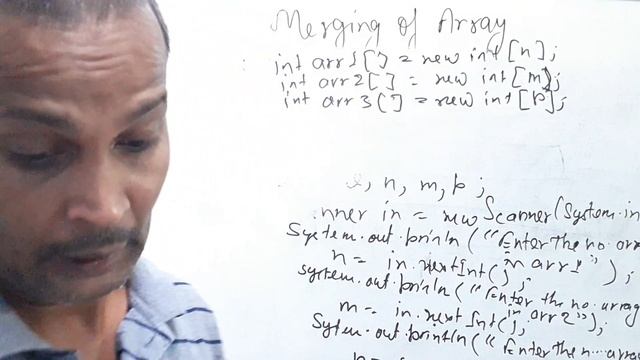 Merging of Array
int arr1[] = new int[n];
int arr2[] = new int[m];
int arr3[] = new int[p];
, n, m, p;
nner in = new Scanner(System.in
System.out.println("Enter the no. arr
in arr1");
n = in.nextInt();
System.out.println("Enter the no. array
in arr2");
m = in.nextInt();
System.out.println("Enter the n